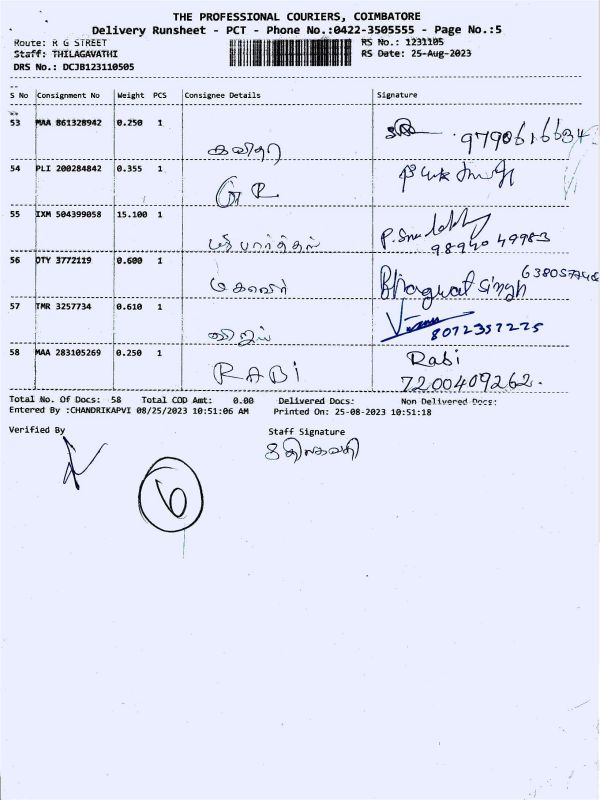 THE PROFESSIONAL COURIERS, COIMBATORE
Delivery Runsheet - PCT - Phone No.:0422-3505555 - Page No.:5
Route: R G STREET RS No.: 1231105
Staff: THILAGAVATHI RS Date: 25-Aug-2023
DRS No.: DCJB123110505
S No Consignment No Weight PCS Consignee Details Signature
53 MAA 861328942 0.250 1
கவிதா 9790616634
54 PLI 200284842 0.355 1
G R
55 IXM 504399058 15.100 1
98940 49983
56 OTY 3772119 0.600 1
Bhagwat Singh
57 TMR 3257734 0.610 1
விஜய் 8072357225
58 MAA 283105269 0.250 1 Rabi
RABi 7200409262.
Total No. Of Docs: 58 Total COD Amt: 0.00 Delivered Docs: Non Delivered Docs:
Entered By :CHANDRIKAPVI 08/25/2023 10:51:06 AM Printed On: 25-08-2023 10:51:18
Verified By Staff Signature
திலகவதி
6